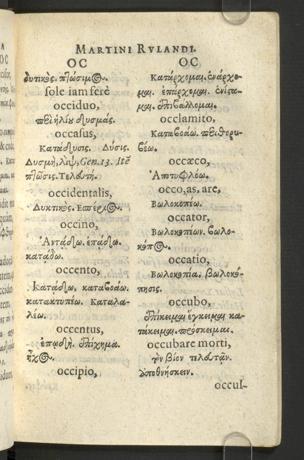 MARTINI RVLANDI.
OC
δυτικὸς. πτώσιμος.
sole iam ferè
occiduo,
περὶ ἡλίου δυσμὰς.
occasus,
Κατάδυσις. Δύσις.
Δυσμὴ, Gen.13.
πτῶσις. Τελευτή.
occidentalis,
Δυκτικὸς.
occino,
Ἀντᾴδω. ἐπᾴδω.
κατᾴδω.
occento,
Κατᾴδω, καταβοάω.
κατακτυπέω. Καταλα-
λέω.
occentus,
ἐπῳδὴ.
ἦχος.
occipio,
OC
Κατάρχομαι. ἐνάρχο-
μαι. ἐπάρχομαι.
μαι. ἐπιβάλλομαι.
occlamito,
Καταβοάω. περιθορυ-
βέω.
occæco,
Ἀποτυφλέω.
occo, as, are,
Βωλοκοπέω.
occator,
Βωλοκοπέων. βωλο-
κόπος.
occatio,
Βωλοκοπία. βωλοκό-
πησις.
occubo,
ἐπίκειμαι ἔγκειμαι κα-
τάκειμαι.
occubare morti,
τὸν βίον τελευτᾷν.
ὑποθνήσκειν.
occul-